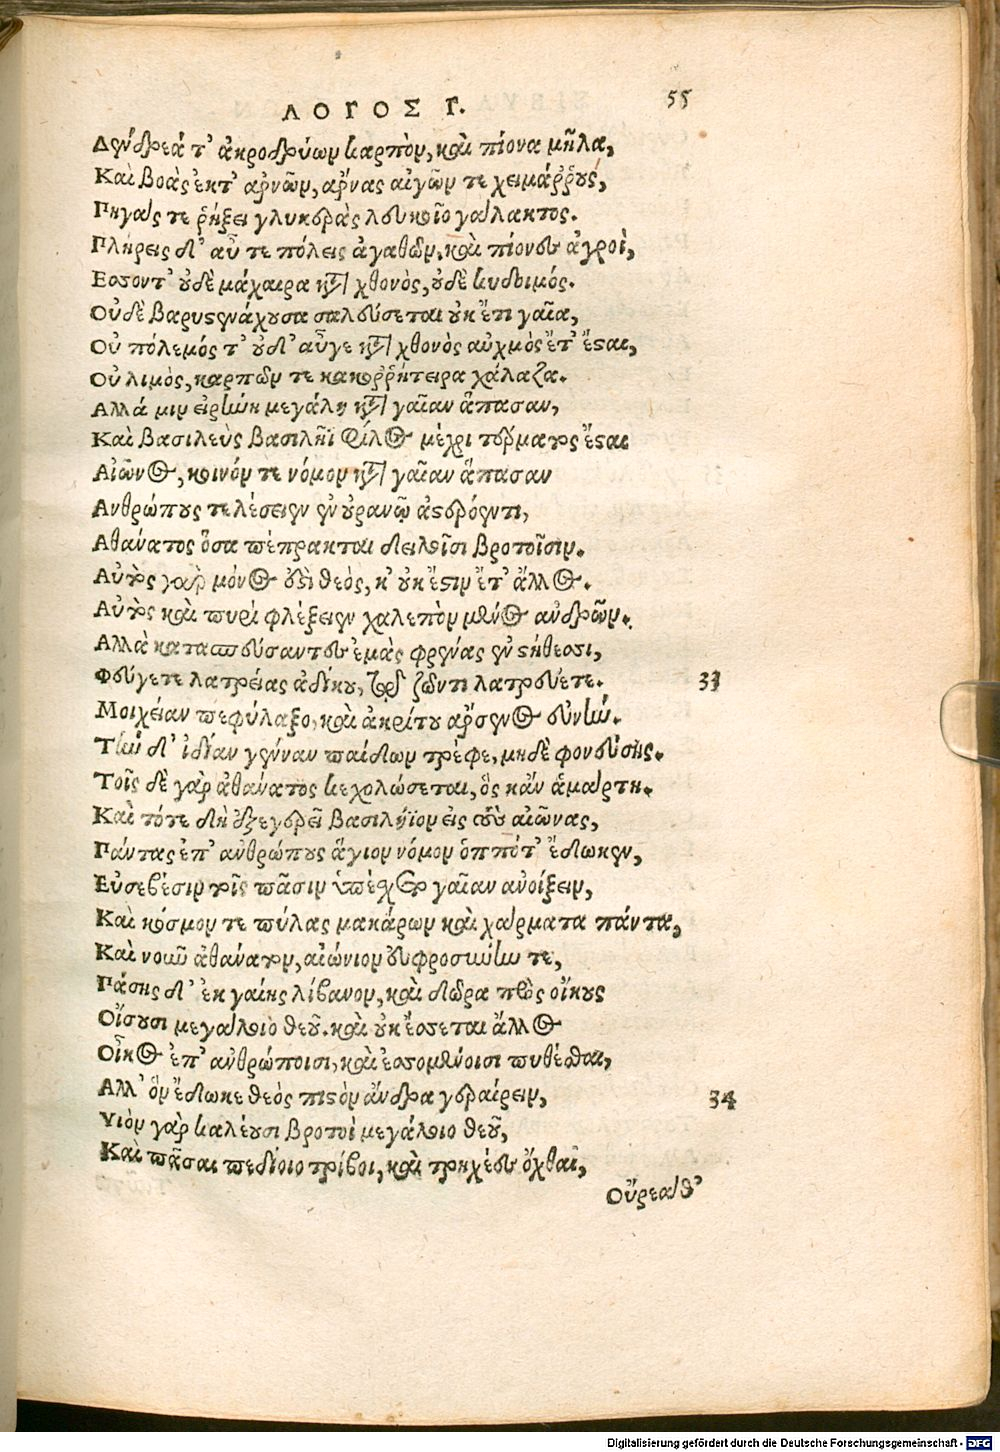 ΛΟΓΟΣ Γ. 55
Δένδρεά τ' ἀκροδρύων καρπὸν, καὶ πίονα μῆλα,
Καὶ βοὰς ἐκτ' ἀρνῶν, ἄρνας αἰγῶν τε χειμάῤῥους,
Πηγάς τε ῥήξει γλυκερὰς λευκοῖο γάλακτος.
Πλήρεις δ' αὖ τε πόλεις ἀγαθῶν, καὶ πίονες ἀγροὶ,
Εσσοντ' οὐδὲ μάχαιρα κατὰ χθονὸς, οὐδὲ κυδοιμός.
Οὐδὲ βαρυστενάχουσα σαλεύσεται οὐκ ἔτι γαῖα,
Οὐ πόλεμός τ' οὐδ' αὖγε κατὰ χθονὸς αὐχμὸς ἔτ' ἔσται,
Οὐ λιμὸς, καρπῶν τε κακοῤῥήτειρα χάλαζα.
Αλλά μιν εἰρήνη μεγάλη κατὰ γαῖαν ἅπασαν,
Καὶ βασιλεὺς βασιλῆϊ φίλος μέχρι τέρματος ἔσται
Αἰῶνος, κοινόν τε νόμον κατὰ γαῖαν ἅπασαν
Ανθρώπους τελέσειεν ἐν οὐρανῷ ἀστερόεντι,
Αθάνατος ὅσα πέπρακται δειλοῖσι βροτοῖσιν.
Αὐτὸς γὰρ μόνος ἐστὶ θεὸς, κ' οὐκ ἔστιν ἔτ' ἄλλος.
Αὐτὸς καὶ πυρὶ φλέξειεν χαλεπὸν μένος ἀνδρῶν.
Αλλὰ κατασπεύσαντες ἐμὰς φρένας ἐν στήθεσσι,
Φεύγετε λατρείας ἀδίκου, τῷ ζῶντι λατρεύετε. 33
Μοιχείαν πεφύλαξο, καὶ ἀκρίτου ἄρσενος εὐνήν.
Τὴν δ' ἰδίαν γένναν παίδων τρέφε, μηδὲ φονεύσῃς.
Τοῖς δὲ γὰρ ἀθάνατος κεχολώσεται, ὅς κἄν ἁμάρτῃ.
Καὶ τότε δὴ ἐξεγερεῖ βασιλήϊον εἰς τοὺς αἰῶνας,
Πάντας ἐπ' ἀνθρώπους ἅγιον νόμον ὁππότ' ἔδωκεν,
Εὐσεβέσιν τοῖς πᾶσιν ὑπέσχετο γαῖαν ἀνοίξειν,
Καὶ κόσμον τε πύλας μακάρων καὶ χάρματα πάντα,
Καὶ νοῦν ἀθάνατον, αἰώνιον εὐφροσύνην τε,
Πάσης δ' ἐκ γαίης λίβανον, καὶ δῶρα πρὸς οἴκους
Οἴσουσι μεγάλοιο θεοῦ. καὶ οὐκ ἔσσεται ἄλλος
Οἶκος ἐπ' ἀνθρώποισι, καὶ ἐσσομένοισι πυθέσθαι,
Αλλ' ὅν ἔδωκε θεὸς πιστὸν ἄνδρα γεραίρειν, 34
Υἱὸν γὰρ καλέουσι βροτοὶ μεγάλοιο θεοῦ,
Καὶ πᾶσαι πεδίοιο τρίβοι, καὶ τρηχέες ὄχθαι,
Οὔρεα θ'
Digitalisierung gefördert durch die Deutsche Forschungsgemeinschaft - DFG